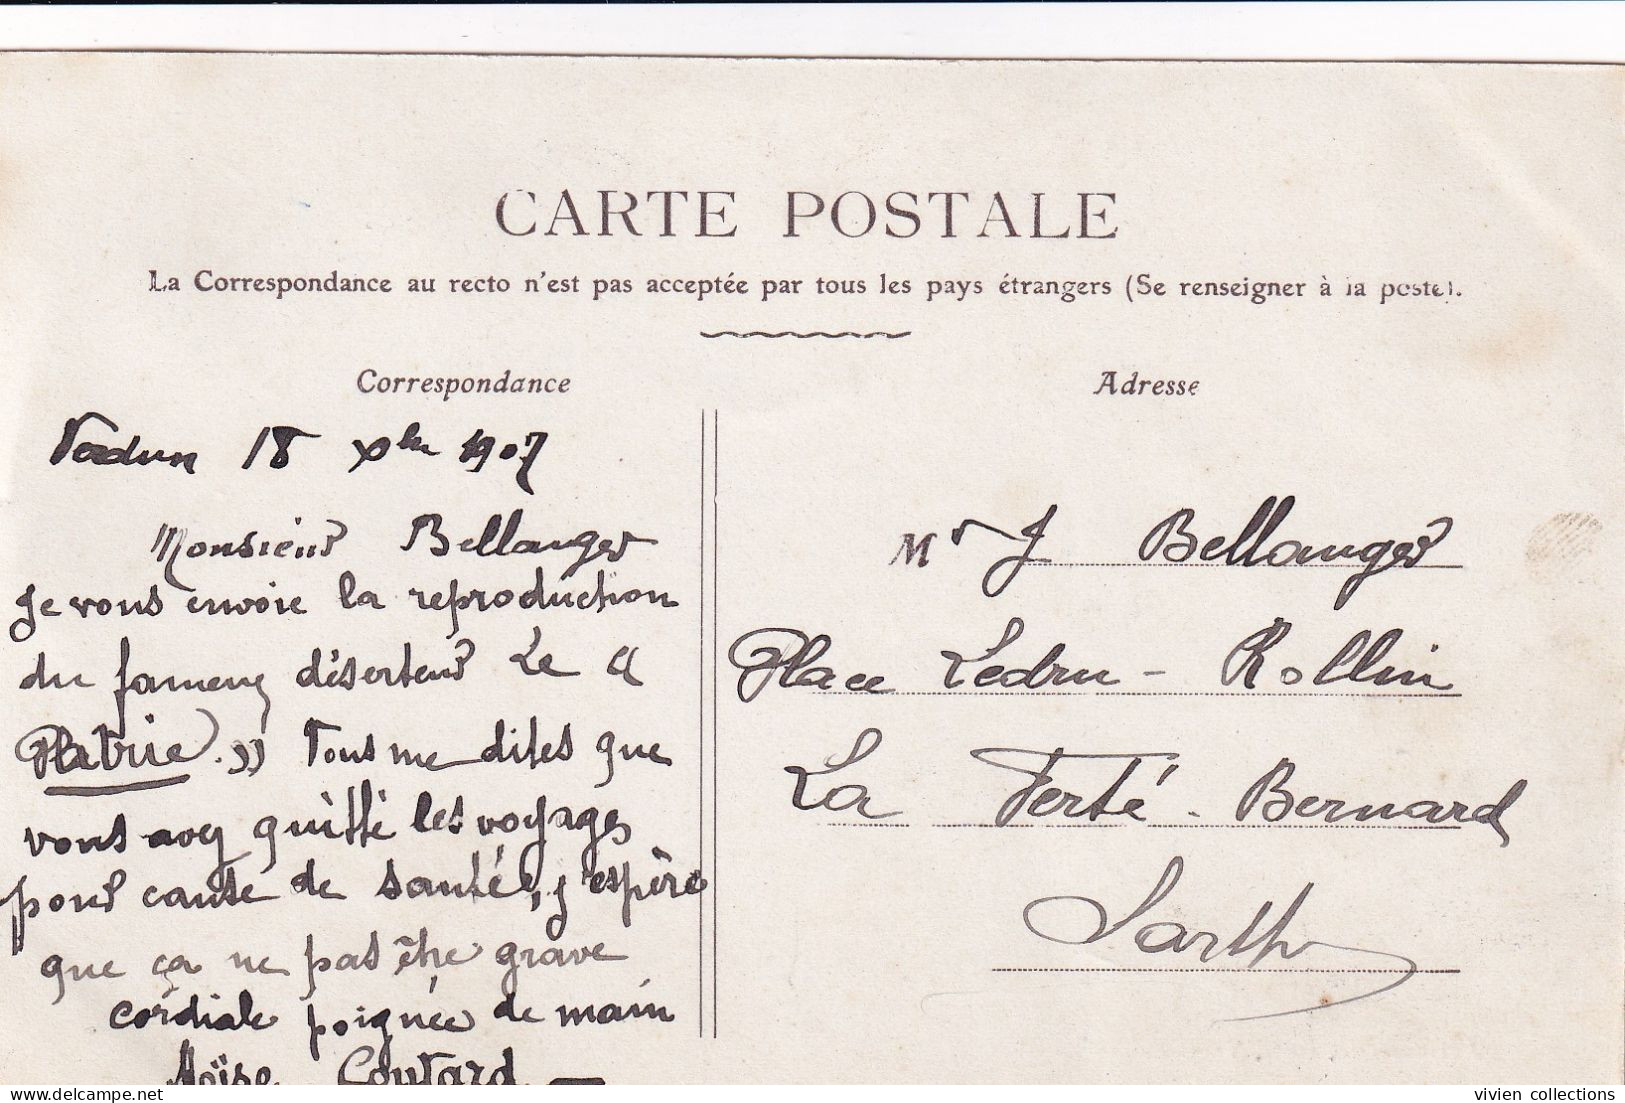 CARTE POSTALE
La Correspondance au recto n'est pas acceptée par tous les pays étrangers (Se renseigner à la poste).
Correspondance
Verdun 18 Xbre 1907
Monsieur Bellanger
Je vous envoie la reproduction
du fameux déserteur Le «
Patrie. » Vous me dites que
vous avez quitté les voyages
pour cause de santé, j'espère
que ça ne pas être grave
cordiale poignée de main
Moïse Coutard
Adresse
Mr J Bellanger
Place Ledru - Rollin
La Ferté - Bernard
Sarthe
vivien collections